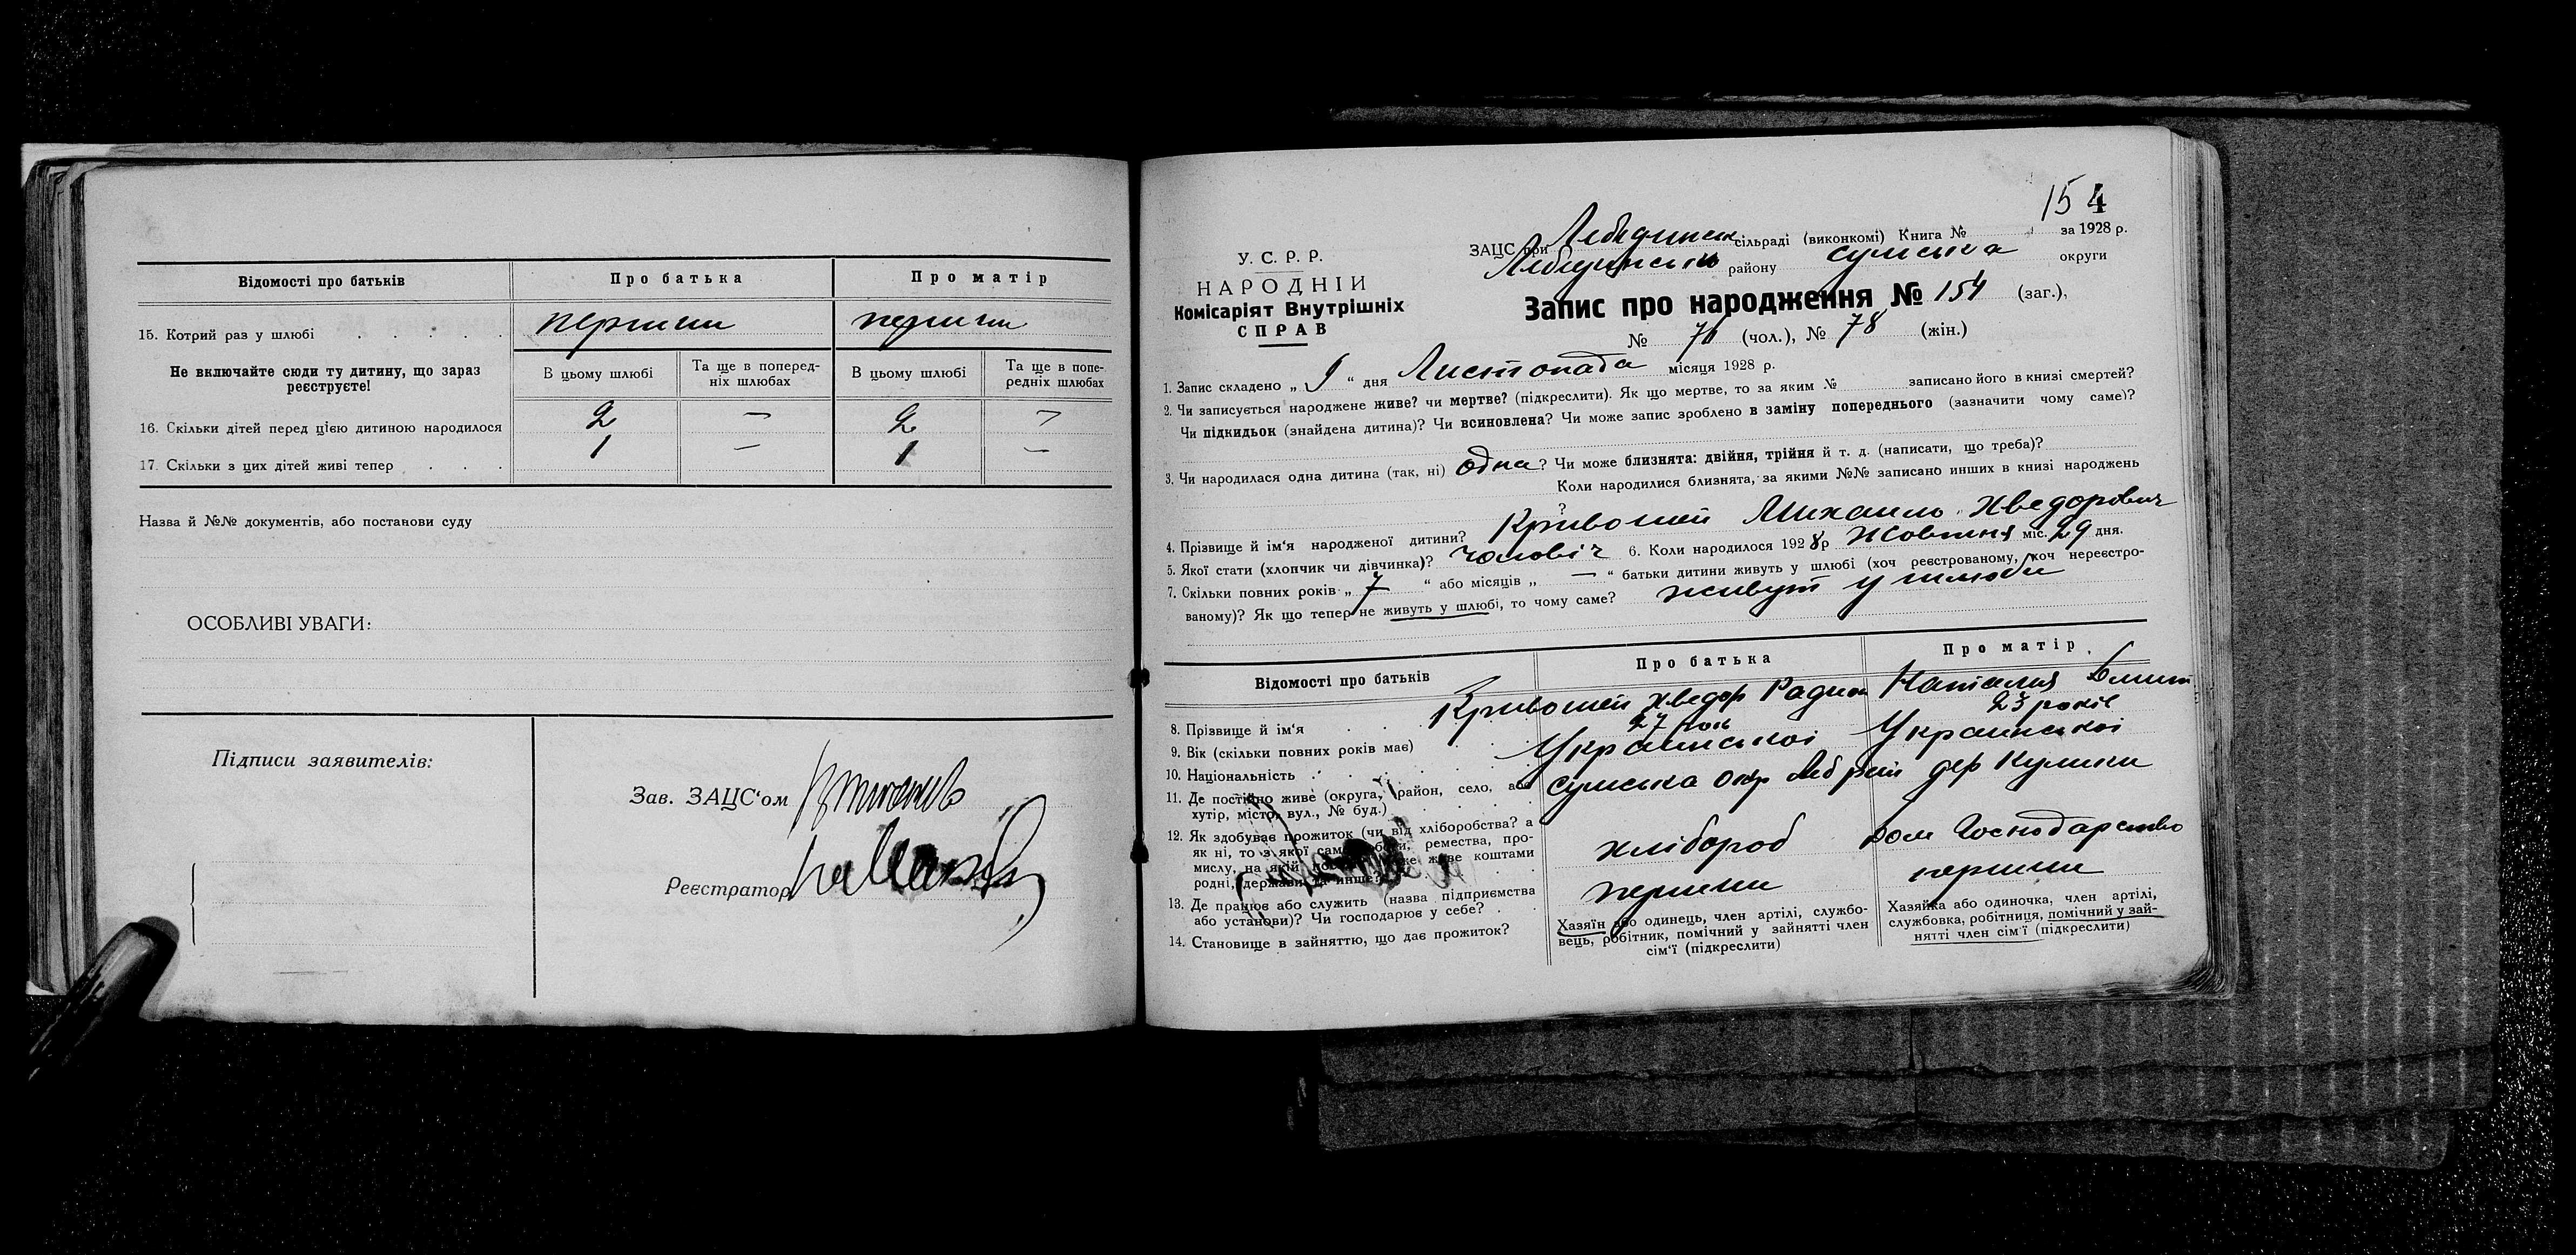 Відомості про батьків Про батька Про матір
15. Котрий раз у шлюбі перший перший
Не включайте сюди ту дитину, що зараз реєструєте! В цьому шлюбі Та ще в поперед-
ніх шлюбах В цьому шлюбі Та ще в попе-
редніх шлюбах
16. Скільки дітей перед цією дитиною народилося 2 — 2 —
17. Скільки з цих дітей живі тепер 1 — 1 —
Назва й №№ документів, або постанови суду
ОСОБЛИВІ УВАГИ:
Підписи заявителів:
Зав. ЗАЦС‘ом
Реєстратор
154
У. С. Р. Р.
НАРОДНІЙ
Комісаріят Внутрішніх
СПРАВ
ЗАЦС при Лебединськ сільраді (виконкомі) Книга № за 1928 р.
Лебединськ району сумська округи
Запис про народження № 154 (заг.),
№ 76 (чол.), № 78 (жін.)
1. Запис складено „ “ дня Листопада місяця 1928 р.
2. Чи записується народжене живе? чи мертве? (підкреслити). Як що мертве, то за яким № записано його в книзі смертей?
Чи підкидьок (знайдена дитина)? Чи всиновлена? Чи може запис зроблено в заміну попереднього (зазначити чому саме)?
3. Чи народилася одна дитина (так, ні) одна? Чи може близнята: двійня, трійня й т. д. (написати, що треба)?
Коли народилися близнята, за якими №№ записано инших в книзі народжень
?
4. Прізвище й ім‘я народженої дитини? Кривошей Михаило Хведорович
5. Якої стати (хлопчик чи дівчинка)? чоловіч 6. Коли народилося 1928 р Жовтня міс. 29 дня.
7. Скільки повних років „ 7 “ або місяців „ — “ батьки дитини живуть у шлюбі (хоч реєстрованому, хоч нереєстро-
ваному)? Як що тепер не живуть у шлюбі, то чому саме? живут у шлюби
Відомості про батьків Про батька Про матір
8. Прізвище й ім‘я Кривошей Хведор Радион Наталия Дмит
9. Вік (скільки повних років має) 27 рок 23 років
10. Національність Украинськоі Украинськоі
11. Де постійно живе (округа, район, село, або
хутір, місто, вул., № буд.) сумська окр Леб рай дер Кулики
12. Як здобуває прожиток (чи від хліборобства? а
як ні, то з якої саме ремества, про-
мислу, на якій живе коштами
родні, держави инше? хлібороб дом Господарство
13. Де працює або служить (назва підприємства
або установи)? Чи господарює у себе? перший перший
14. Становище в зайняттю, що дає прожиток?
Хазяїн або одинець, член артілі, службо-
вець, робітник, помічний у зайнятті член
сім‘ї (підкреслити)
Хазяйка або одиночка, член артілі,
службовка, робітниця, помічний у зай-
нятті член сім‘ї (підкреслити)